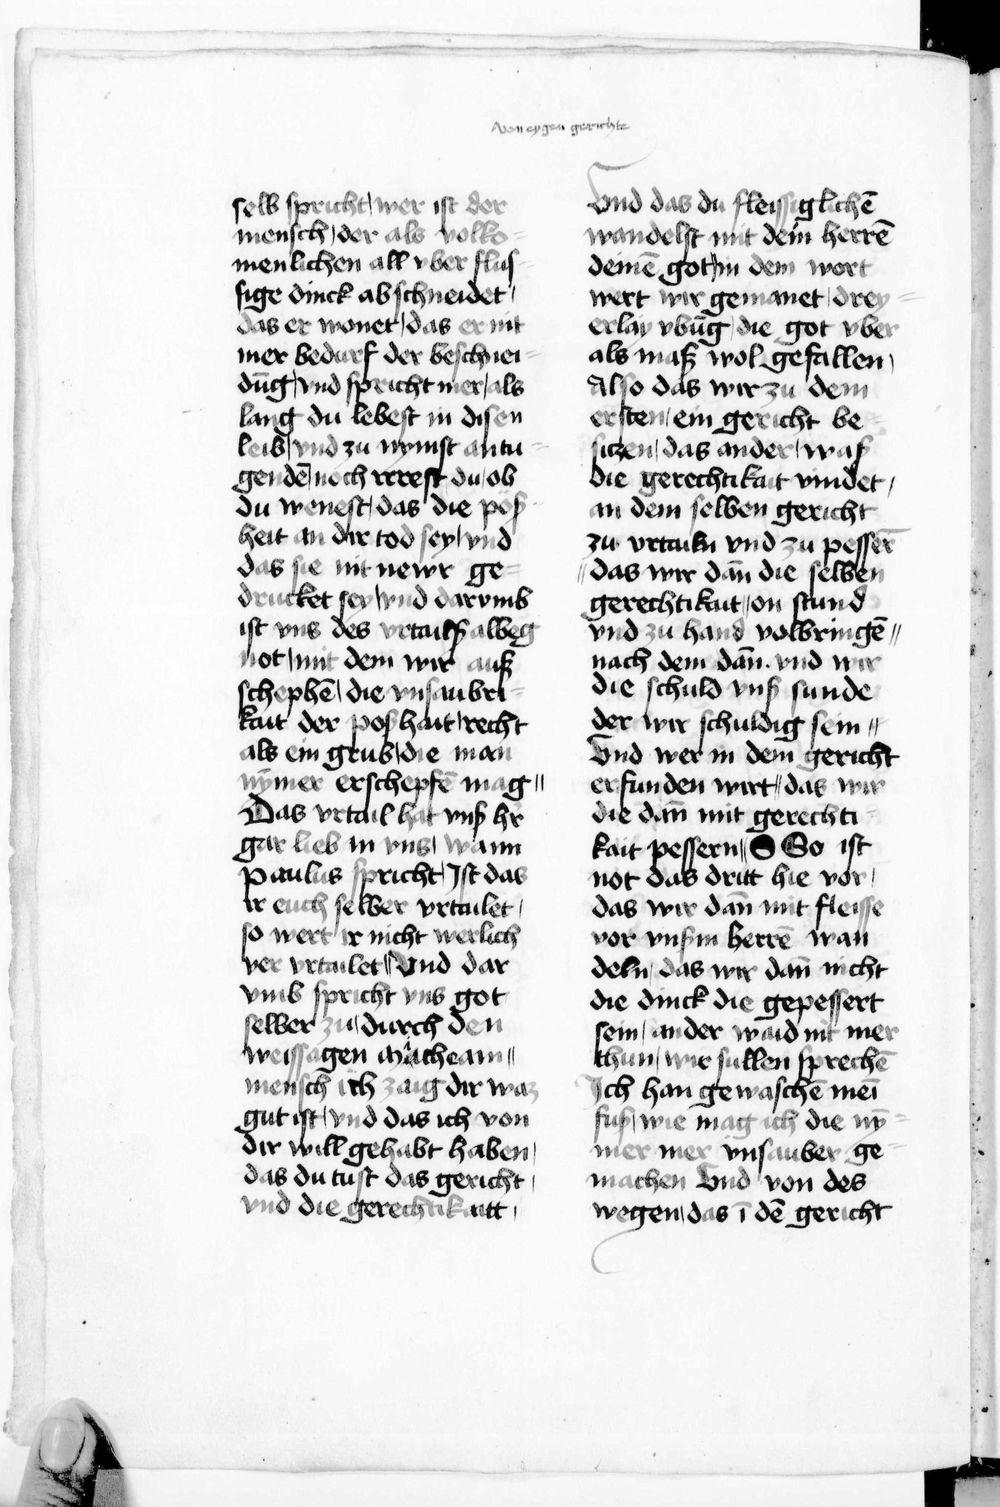 Von eygen gerichte
selb spricht / wer ist der
mensch / der als volko-
menlichen all vber flus-
sige dinck ab schneidet /
das er wonet / das er nit
mer bedurf der beschnei-
dūg / vnd spricht mer / als
lang du lebest in disen
leib / vnd zu nymst an tu-
gendē / noch rrrest du / ob
du wenest / das die pöß-
heit an dir tod sey / vnd
das sie nit newr ge-
drucket sey / vnd darvmb
ist vns des vrtailß albeg
not / mit dem wir auß
schephē / die vnsaubri-
kait der poshait / recht
als ein grub / die man
nȳmer erschepfē mag //
Das vrtail hat vnß hr
gar lieb in vns / wann
Paulus spricht / Ist das
ir euch selber vrtailet /
so wert ir nicht werlich
ver vrtailet // Vnd dar
vmb spricht vns got
selber zu / durch den
weissagen Micheam //
mensch ich zaig dir waz
gut ist / vnd das ich von
dir will gehabt haben /
das du tust das gericht /
vnd die gerechtikaitt /
Vnd das du fleissiglichē
wandelst mit dein herrē
deinē got / in dem wort
wert wir gemanet / drey-
erlay vbūg / die got vber
als maß wol gefallen /
Also das wir zu dem
ersten / ein gericht be-
siczen / das ander / waß
die gerechtikait vindet /
an dem selben gericht
zu vrtailn vnd zu pesserñ
// das wir dañ die selben
gerechtikait / on stund
vnd zu hand volbringē //
nach dem dañ. vnd wir
die schuld vnß sunde
der wir schuldig sein //
Vnd wer in dem gericht
erfunden wirt // das wir
die dañ mit gerechti-
kait pessern // So ist
not das dritt hie vor /
das wir dañ mit fleisse
vor vnßm herrē wan
deln / das wir dañ nicht
die dinck die gepessert
sein / ander waid nit mer
thun / wir sullen sprechē
Ich han gewaschē meī
fuß / wie mag ich die nȳ-
mer mer vnsauber ge-
machen Vnd von des
wegen / das ī dē gericht